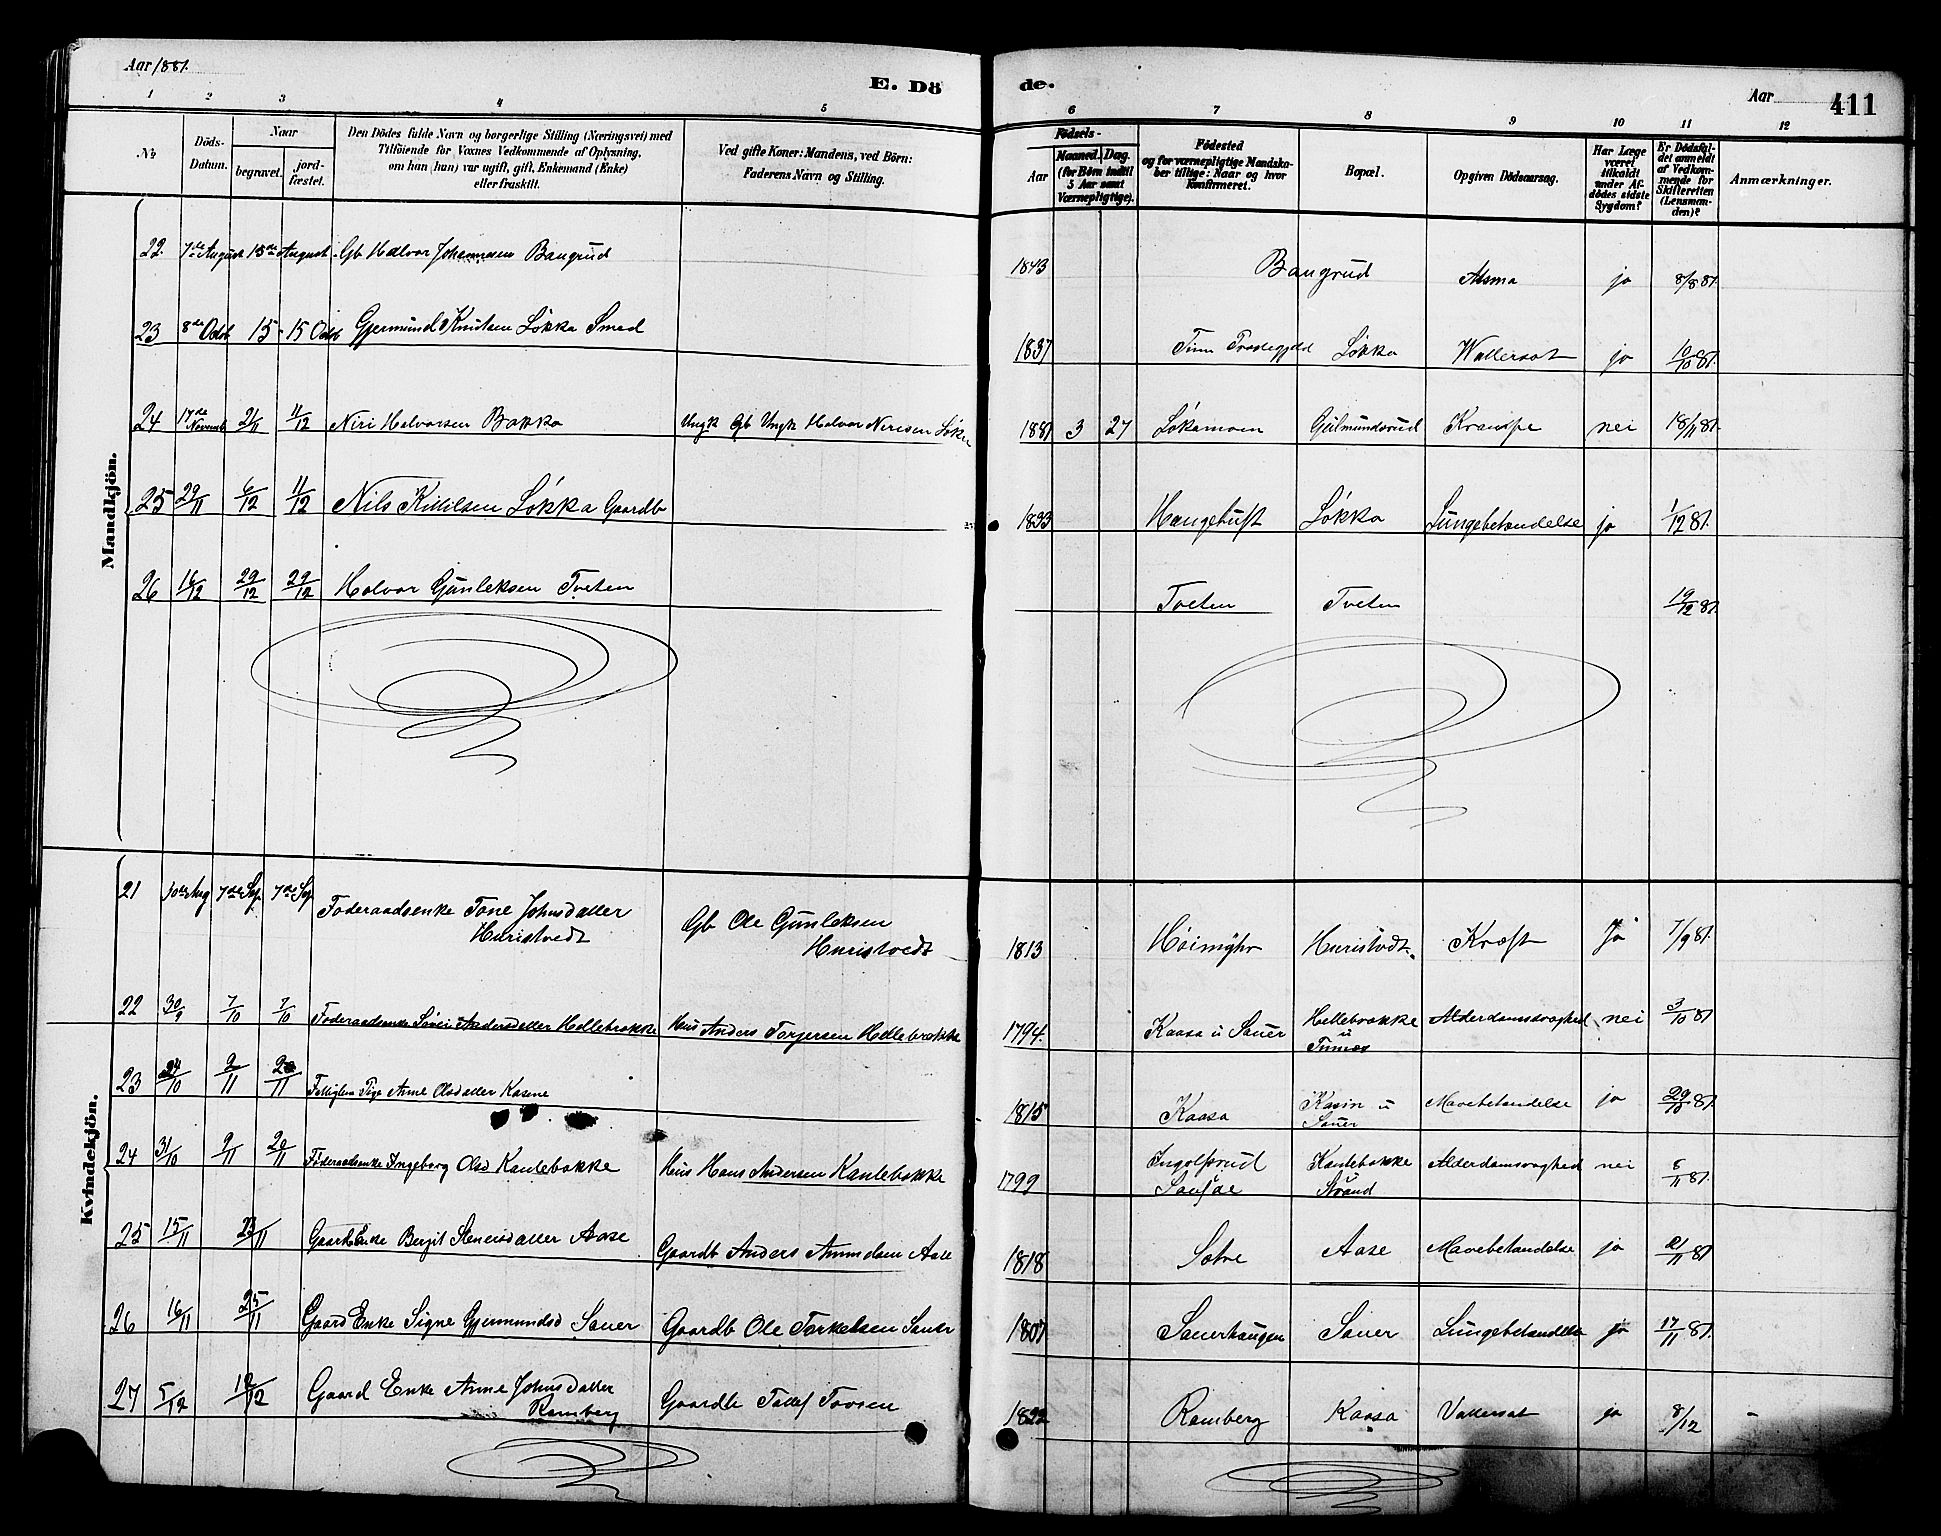 Aar 1881.
E. Dö
de.
Aar
411
1 2 3 4 5 6 7 8 9 10 11 12
No
Döds-Datum.
Naar
begravet.
jord-fæstet.
Den Dödes fulde Navn og borgerlige Stilling (Næringsvei) med
Tilföiende for Voxnes Vedkommende af Oplysning,
om han (hun) var ugift, gift, Enkemand (Enke)
eller fraskilt.
Ved gifte Koner: Mandens, ved Börn:
Faderens Navn og Stilling.
Födsels-
Aar
Maaned. Dag.
(for Börn indtil
5 Aar samt
Værnepligtige).
Födested
og for værnepligtige Mandska-
ber tillige: Naar og hvor
Konfirmeret.
Bopæl.
Opgiven Dödsaarsag.
Har Læge
været
tilkaldt
under Af-
dödes sidste
Sygdom?
Er Dödsfal-
det anmeldt
af Vedkom-
mende for
Skifteretten
(Lensman-
den)?
Anmærkninger.
Mandkjön.
22. 7de August 15de August Gb Halvor Johannesen Baugrud 1843 Baugrud Asma ja 8/8 81.
23 8de Octb 15 - 15 Octb Gjermund Knutsen Løkka Smed 1837 Tinn Løkka Wattersot ja 10/10 81.
24 17de Novemb 21/11 11/12 Niri Halvorsen Bakka Ungk Gb Ungk Halvor Nirisen Løkka 1881 3 27 Løkamoen Geilmundsrud Krampe nei 18/11 81.
25 29/11 6/12 11/12 Nils Kittilsen Løkka Gaardb 1833 Haugetuft Løkka Lungebetændelse ja 1/12 81.
26 16/12 29/12 29/12 Halvor Gunleksen Tveten Tveten Tveten 19/12 81.
Kvindekjön.
21 10de Aug 7de Sep. 7de Sep Føderaadsenke Tone Johnsdatter
Huristvedt Gb Ole Gunleksen
Huristvedt 1813 Høimyhr Huristvedt. Kræft Ja 7/9 81.
22 30/9 7/10 7/10 Føderaadsenke Andersdatter Hellebrække Hus Anders Torjersen Hellebrække 1794. Kaasa i Sauer Hellebrække
i
Tinnes Alderdomssvaghed nei 3/10 81
23 24/10 9/11 20/11 Pige Anne Olsdatter Kasene 1815 Kaasa Kasin i
Sauer Mavebetændelse ja 29/10 81.
24 31/10 9/11 20/11 Føderaadsenke Ingeborg Olsd Kantebække Hus Hans Andersen Kantebække 1799 Ingolfsrud Kantebække
Strand Alderdomsvaghed nei 5/11 81.
25 15/11 23/11 Gaard Enke Bergit Steinersdatter Aase Gaardb Anders Aase 1818 Sotve Aase Mavebetændelse ja 21/11 81
26 16/11 25/11 Gaard Enke Signe Gjermundsd Sauer Gaardb Ole Torkelsen Sauer 1807 Sauerhaugen Sauer Lungebetændelse ja 17/11 81.
27 5/12 12/12 Gaard Enke Anne Johnsdatter
Ramberg Gaardb Tollef Tovsen 1822 Ramberg Kaasa Vattersot ja 8/12